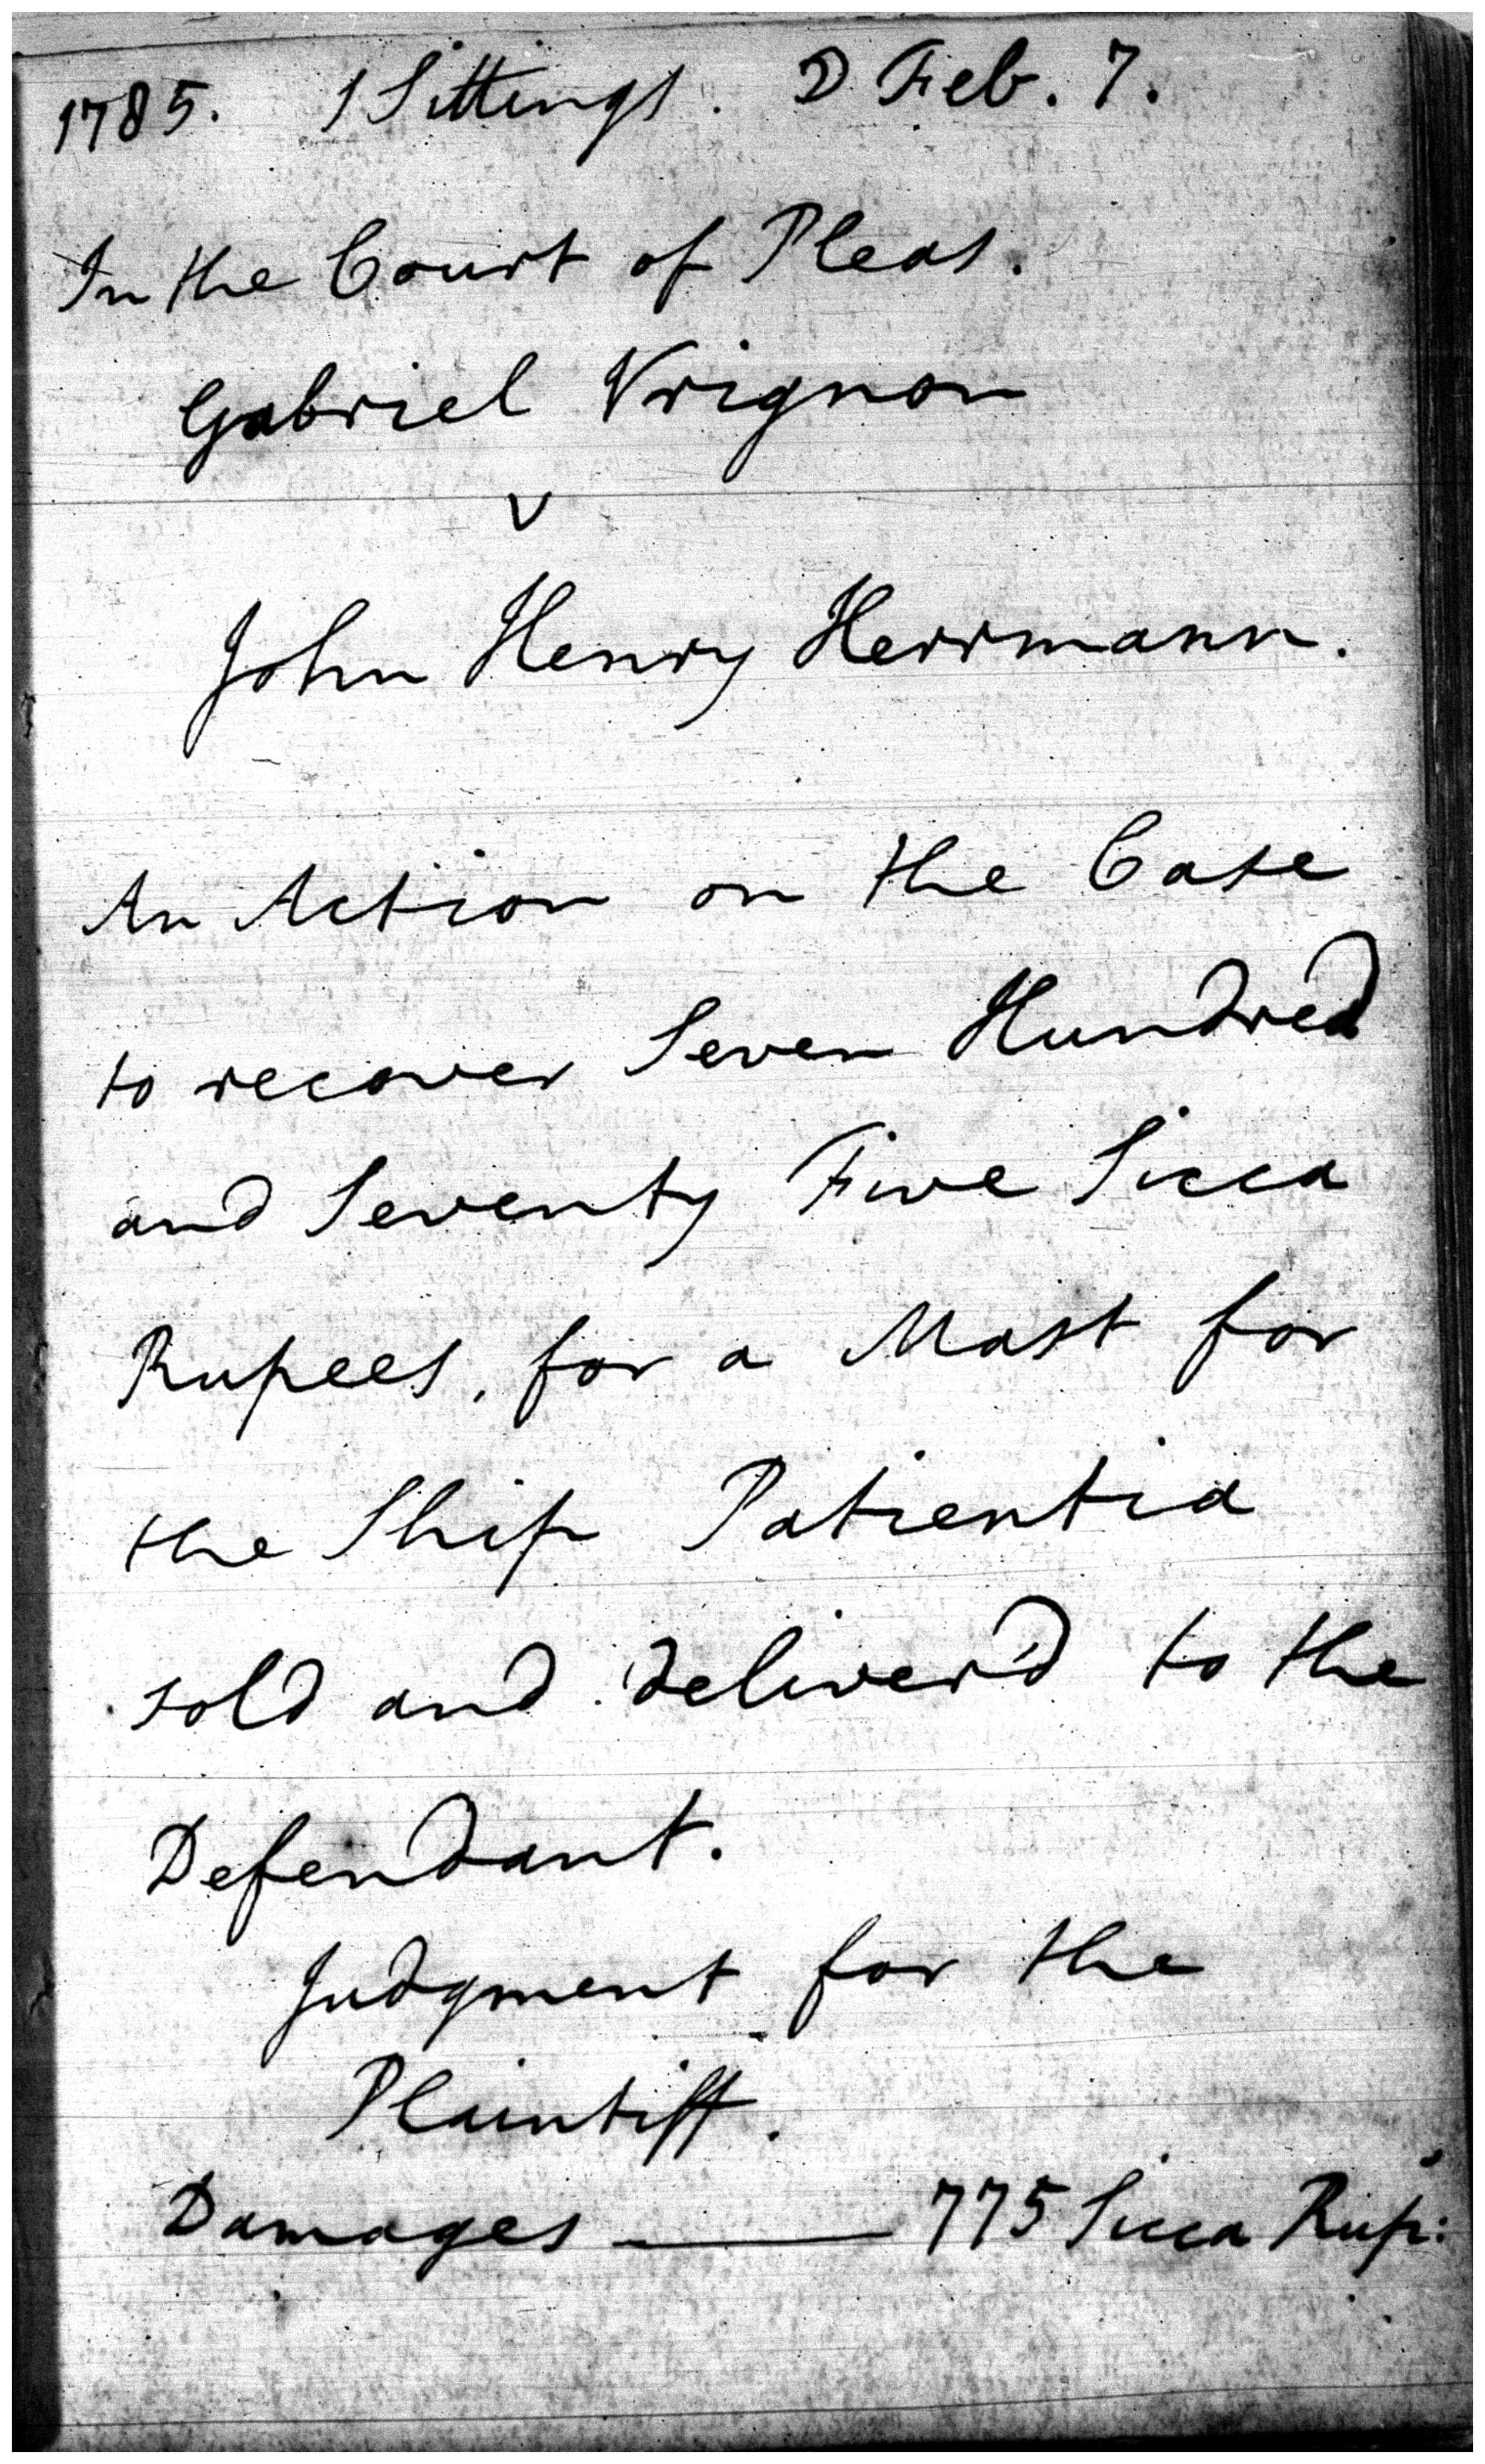 1785. 1 Sittings. D Feb. 7.
In the Court of Pleas.
Gabriel Vrignon
v
John Henry Herrmann.
An Action on the Case
to recover Seven Hundred
and Seventy Five Sicca
Rupees, for a Mast for
the Ship Patientia
sold and deliver'd to the
Defendant.
Judgment for the
Plaintiff.
Damages — 775 Sicca Rup: